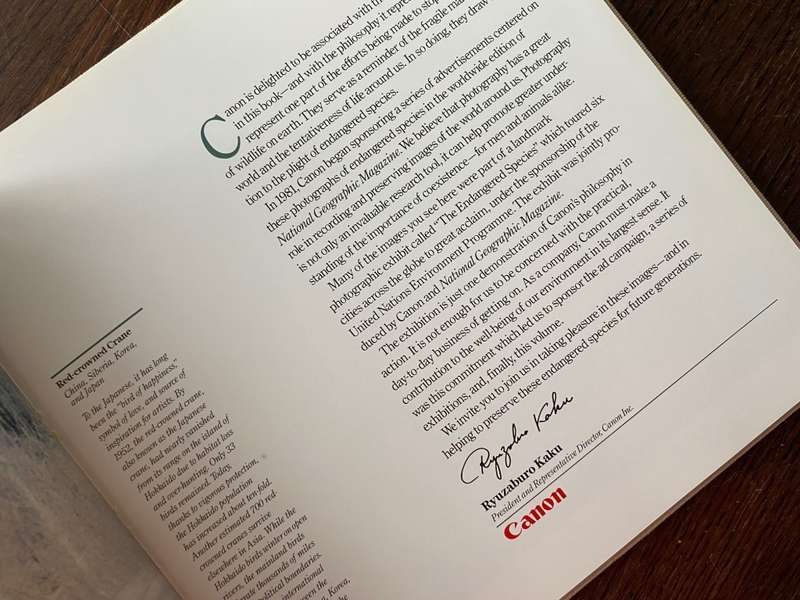 Red-crowned Crane
China, Siberia, Korea,
and Japan
To the Japanese, it has long
been the "bird of happiness,"
symbol of love, and source of
inspiration for artists. By
1952, the red-crowned crane,
also known as the Japanese
crane, had nearly vanished
from its range on the island of
Hokkaido due to habitat loss
and overhunting. Only 33
birds remained. Today,
thanks to vigorous protection,
the Hokkaido population
has increased about ten fold.
Another estimated 700 red-
crowned cranes survive
elsewhere in Asia. While the
Hokkaido birds winter on open
rivers, the mainland birds
thousands of miles
political boundaries.
international
between the
Korea,
the
Canon is delighted to be associated with the
in this book—and with the philosophy it
represent one part of the efforts being made to stop
of wildlife on earth. They serve as a reminder of the fragile
world and the tentativeness of life around us. In so doing, they draw
tion to the plight of endangered species.
In 1981, Canon began sponsoring a series of advertisements centered on
these photographs of endangered species in the worldwide edition of
National Geographic Magazine. We believe that photography has a great
role in recording and preserving images of the world around us. Photography
is not only an invaluable research tool, it can help promote greater under-
standing of the importance of coexistence—for men and animals alike.
Many of the images you see here were part of a landmark
photographic exhibit called "The Endangered Species" which toured six
cities across the globe to great acclaim, under the sponsorship of the
United Nations Environment Programme. The exhibit was jointly pro-
duced by Canon and National Geographic Magazine.
The exhibition is just one demonstration of Canon's philosophy in
action. It is not enough for us to be concerned with the practical,
day-to-day business of getting on. As a company, Canon must make a
contribution to the well-being of our environment in its largest sense. It
was this commitment which led us to sponsor the ad campaign, a series of
exhibitions, and, finally, this volume.
We invite you to join us in taking pleasure in these images—and in
helping to preserve these endangered species for future generations.
Ryuzaburo Kaku
Ryuzaburo Kaku
President and Representative Director, Canon Inc.
Canon